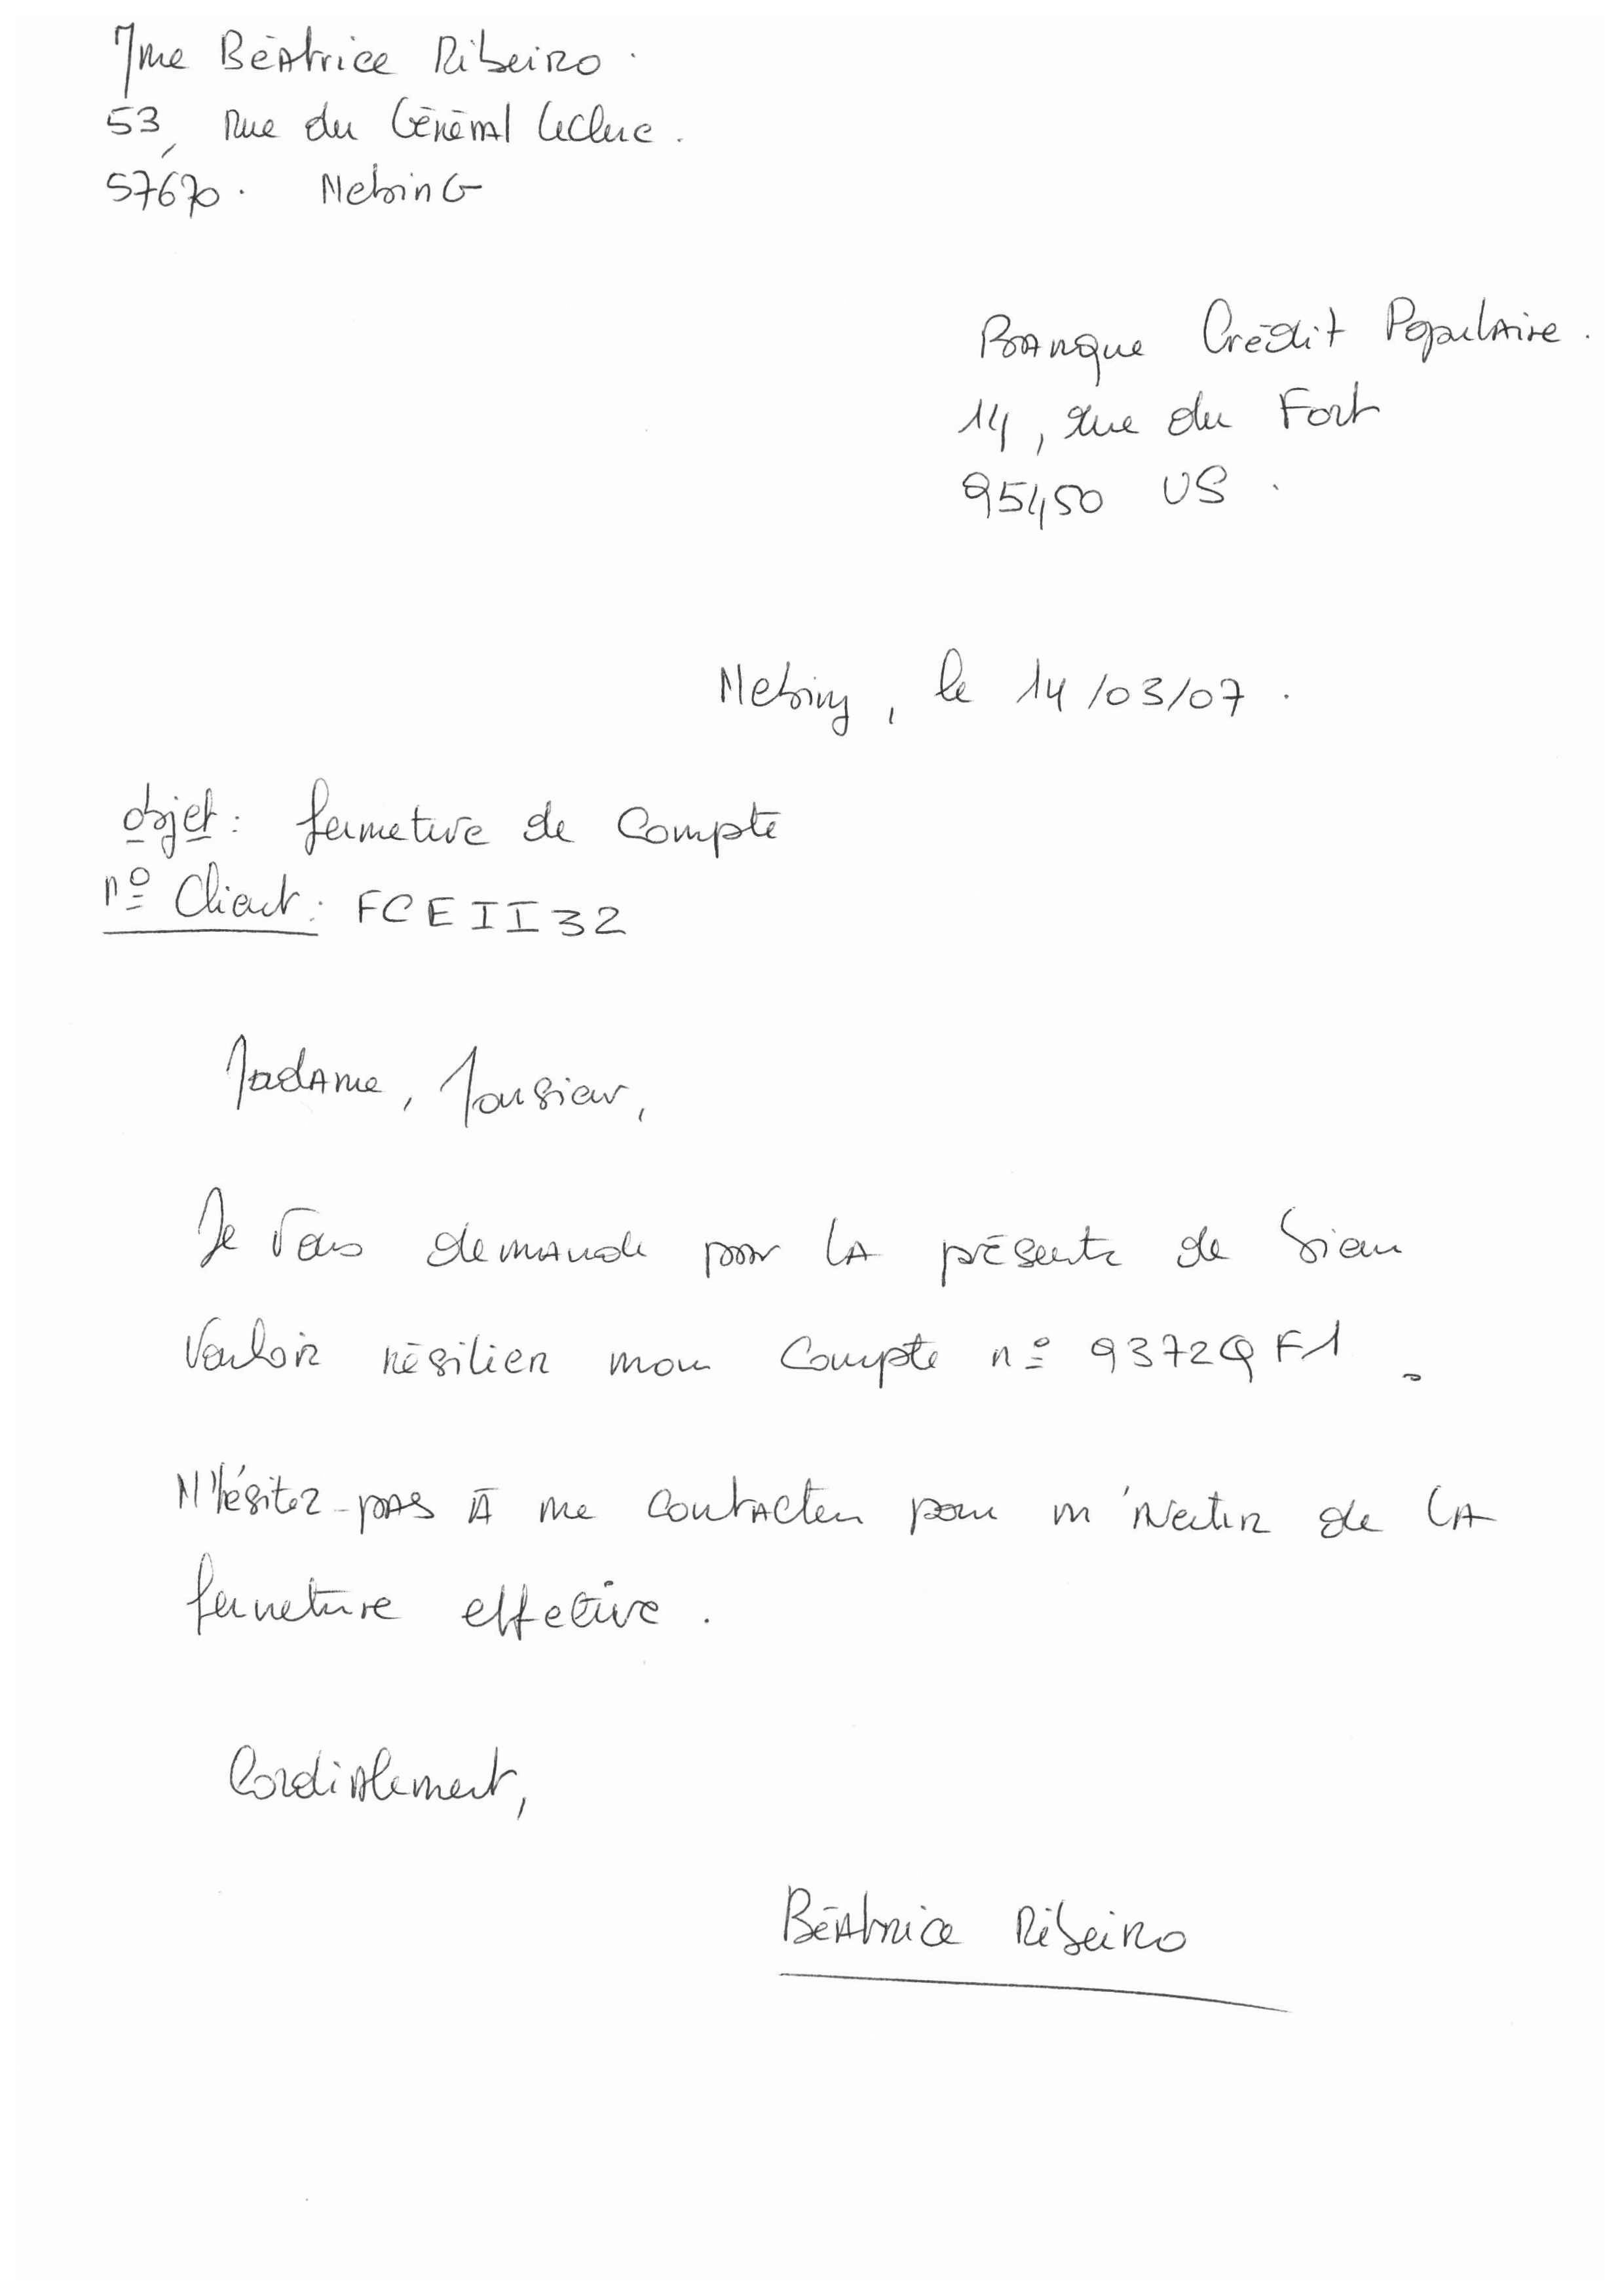 Mme Béatrice Ribeiro.
53, rue du Général Leclerc.
57670. Nebing
Banque Crédit Populaire.
14, rue du Fort
95450 US.
Nebing, le 14/03/07.
objet: fermeture de compte
n° Client: FCEII32
Madame, Monsieur,
Je vous demande par la présente de bien
vouloir résilier mon compte n° 9372QF1.
N'hésitez-pas à me contacter pour m'avertir de la
fermeture effective.
Cordialement,
Béatrice Ribeiro